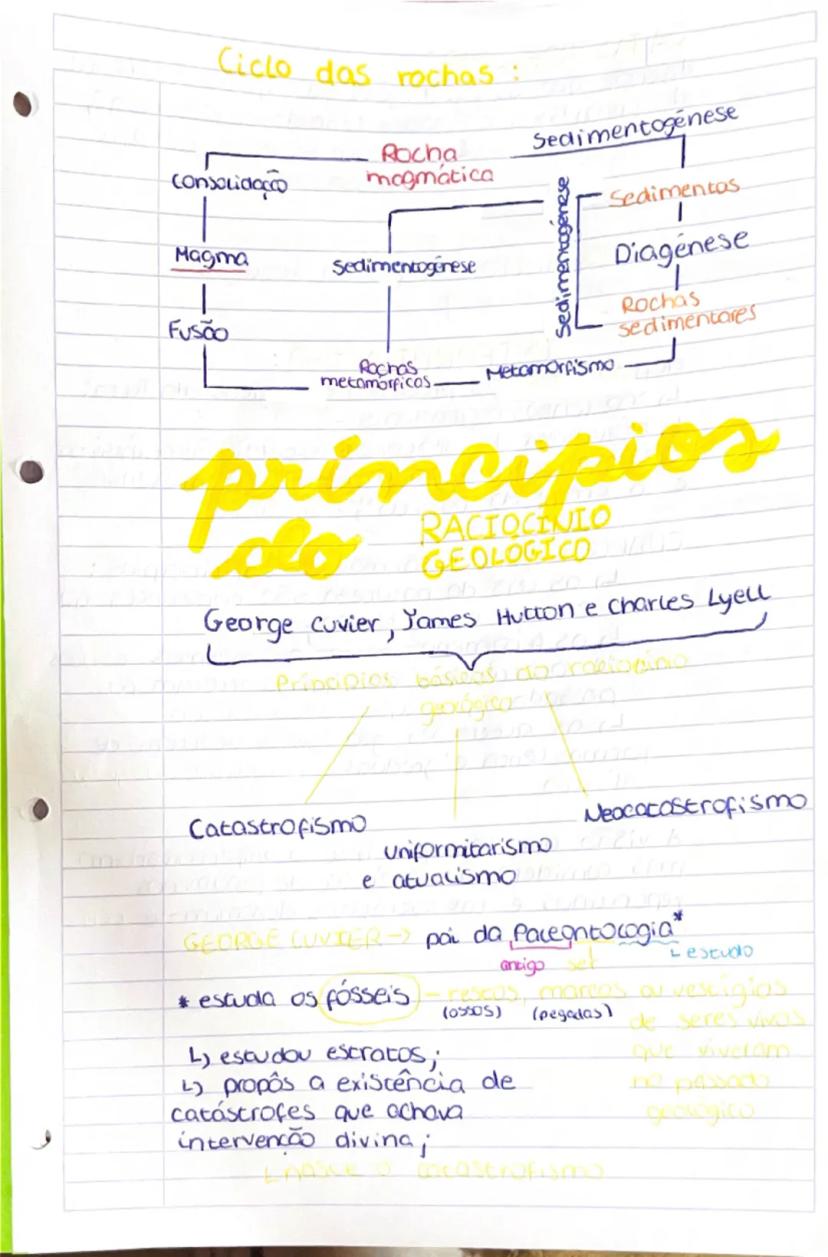 Ciclo das rochas :
Sedimentogénese
Rocha
magmática
Consolidação
Sedimentos
Sedimentogénese
Magma
Sedimentogénese
Diagénese
Rochas
sedimentares
Fusão
Rochas
metamórficas
Metamorfismo
princípios
do RACIOCÍNIO
GEOLÓGICO
George Cuvier, James Hutton e Charles Lyell
Princípios básicos do raciocínio
geológico
Catastrofismo
Neocatastrofismo
uniformitarismo
e atualismo
GEORGE CUVIER → pai da Paleontologia*
antigo ser estudo
* estuda os fósseis - restos, marcas ou vestígios
(ossos) (pegadas) de seres vivos
que viveram
no passado
geológico
↳ estudou estratos;
↳ propôs a existência de
catástrofes que achava
intervenção divina;
↳ nasce o catastrofismo